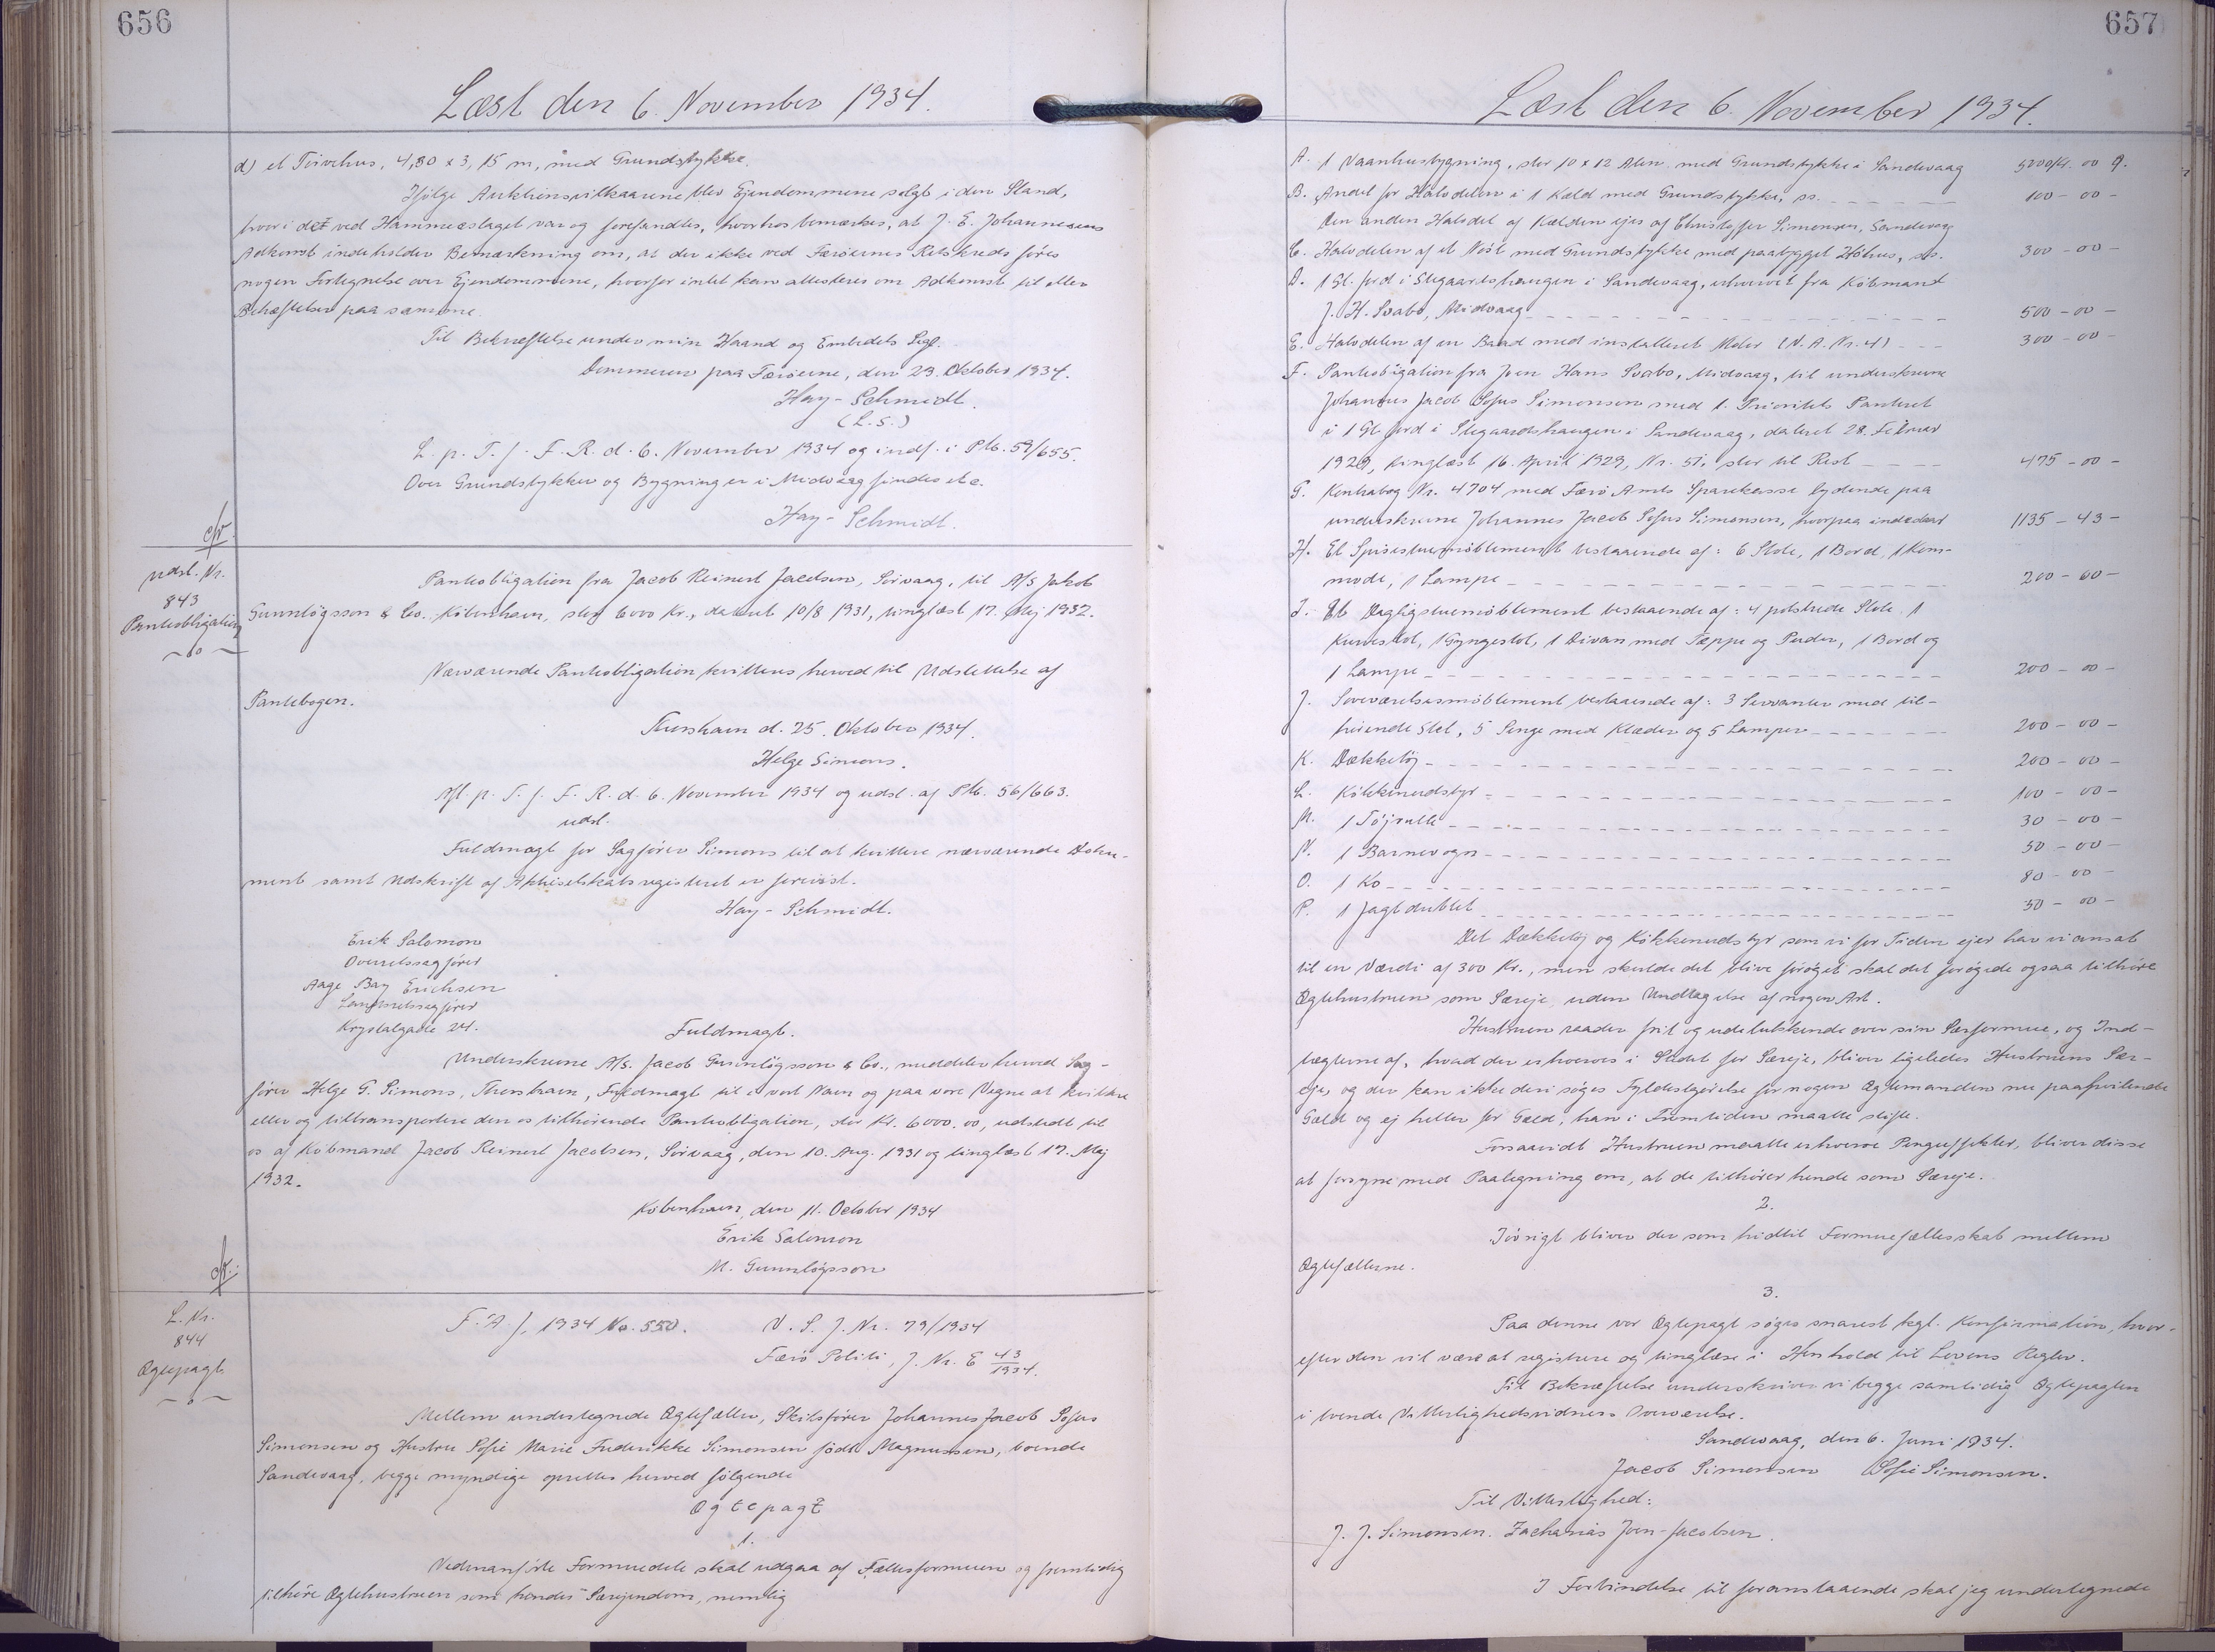 656
Læst den 6. November 1934.
d) et Torvehus, 4,80 x 3,15 m, med Grundstykke.
Ifölge Auktionsvilkaarene blev Ejendommene solgt i den Stand,
hvori det ved Hammerslaget var og forefandtes, hvorhos bemærkes, at J. E. Johannesens
Adkomst indeholder Bemærkning om, at der ikke ved Færöernes Retskreds føres
nogen Fortegnelse over Ejendommene, hvorfor intet kan attesteres om Adkomst til eller
Behæftelser paa samme.
Til Bekræftelse under min Haand og Embedets Segl.
Dommeren paa Færöerne, den 29. Oktober 1934.
Hay-Schmidt.
(L.S.)
L. p. T. f. F. R. d. 6. November 1934 og indf. i Ptb. 59/655.
Over Grundstykker og Bygninger i Midvaag findes
Hay-Schmidt.
Udsl. Nr.
843
Panteobligation
Panteobligation fra Jacob Reinert Jacobsen, Sörvaag, til A/S Jakob
Gunnlögsson & Co., Köbenhavn, stor 6000 Kr., dateret 10/8 1931, tinglæst 17. Maj 1932.
Nærværende Panteobligation kvitteres herved til Udslettelse af
Pantebogen.
Thorshavn d. 25. Oktober 1934.
Helge Simons.
Afl. p. T. f. F. R. d. 6. November 1934 og udsl. af Ptb. 56/663.
udsl.
Fuldmagt for Sagförer Simons til at kvittere nærværende Doku-
ment samt Udskrift af Aktieselskabsregisteret er forevist.
Hay-Schmidt.
Erik Salomon
Overretssagförer
Aage Bay Erichsen
Landsretssagförer
Krystalgade 24.
Fuldmagt.
Underskrevne A/S. Jacob Gunnlögsson & Co., meddeler herved Sag-
förer Helge G. Simons, Thorshavn, Fuldmagt til i vort Navn og paa vore Vegne at kvittere
eller og tiltransportere den os tilhörende Panteobligation, stor Kr. 6000.00, udstedt til
os af Köbmand Jacob Reinert Jacobsen, Sörvaag, den 10. Aug. 1931 og tinglæst 17. Maj
1932.
Köbenhavn, den 11. October 1934
Erik Salomon
M. Gunnlögsson
L. Nr.
844
Ægtepagt
F. A. J. 1934 No. 550. V. S. J. Nr. 79/1934
Færö Politi, J. Nr. E 43/1934.
Mellem undertegnede Ægtefæller, Skibsförer Johannes Jacob Sofus
Simonsen og Hustru Sofie Marie Frederikke Simonsen födt Magnussen, boende
Sandevaag, begge myndige oprettes herved fölgende
Ægtepagt
1.
Nedenanförte Formuedele skal udgaa af Fællesformuen og fremtidig
tilhöre Ægtehustruen som hendes Særejendom, nemlig
657
Læst den 6. November 1934.
A. 1 Vaanhusbygning, stor 10 x 12 Alen med Grundstykke i Sandevaag 5200 Kr. 00 Ø.
B. Andel for Halvdelen i 1 Kæld med Grundstykke, ss. 100 - 00 -
Den anden Halvdel af Kælden ejes af Christoffer Simonsen, Sandevaag
C. Halvdelen af et Nöst med Grundstykke med paabygget Höhus, ss. 300 - 00 -
D. 1 Gl. Jord i Stegaardshaugen i Sandevaag, erhvervet fra Köbmand
J. H. Svabo, Midvaag 500 - 00 -
E. Halvdelen af en Baad med installeret Motor (V. A. Nr. 41) 300 - 00 -
F. Panteobligation fra Joen Hans Svabo, Midvaag, til underskrevne
Johannes Jacob Sofus Simonsen med 1. Prioritets Panteret
i 1 Gl. Jord i Stegaardshaugen i Sandevaag, dateret 28. Februar
1929, tinglæst 16. April 1929, Nr. 51, stor til Rest 475 - 00 -
G. Kontrabog Nr. 4704 med Færö Amts Sparekasse lydende paa
underskrevne Johannes Jacob Sofus Simonsen, hvorpaa indestaar 1135 - 43 -
H. Et Spisestuemöblement bestaaende af: 6 Stole, 1 Bord, 1 Kom-
mode, 1 Lampe 200 - 00 -
I. Et Dagligstuemöblement bestaaende af: 4 polstrede Stole, 1
Kurvestol, 1 Gyngestol, 1 Divan med Tæppe og Puder, 1 Bord og
1 Lampe 200 - 00 -
J. Soveværelsesmöblement bestaaende af: 3 Servanter med til-
hörende Stel, 5 Senge med Klæder og 5 Lamper 200 - 00 -
K. Dækketöj 200 - 00 -
L. Kökkenudstyr 100 - 00 -
M. 1 Töjrulle 30 - 00 -
N. 1 Barnevogn 50 - 00 -
O. 1 Ko 80 - 00 -
P. 1 Jagtdublet 50 - 00 -
Det Dækketöj og Kökkenudstyr som vi for Tiden ejer har vi ansat
til en Værdi af 300 Kr., men skulde det blive forøget skal det forøgede ogsaa tilhöre
Ægtehustruen som Særeje, uden Undtagelse af nogen Art.
Hustruen raader frit og udelukkende over sin Særformue, og Ind-
tægterne af, hvad der erhverves i Stedet for Særeje, bliver ligeledes Hustruens Sær-
eje, og der kan ikke deri söges Fyldestgörelse for nogen Ægtemanden nu paahvilende
Gæld og ej heller for Gæld, han i Fremtiden maatte stifte.
Forsaavidt Hustruen maatte erhverve Pengeeffekter, bliver disse
at forsyne med Paategning om, at de tilhörer hende som Særeje.
2.
Iövrigt bliver der som hidtil Formuefællesskab mellem
Ægtefællerne.
3.
Paa denne vor Ægtepagt söges snarest kgl. Konfirmation, hvor-
efter den vil være at registrere og tinglæse i Henhold til Lovens Regler.
Til Bekræftelse underskriver vi begge samtidig Ægtepagten
i tvende Vitterlighedsvidners Overværelse.
Sandevaag, den 6. Juni 1934.
Jacob Simonsen Sofie Simonsen.
Til Vitterlighed:
J. J. Simonsen. Zacharias Joen-Jacobsen.
I Forbindelse til foranstaaende skal jeg undertegnede